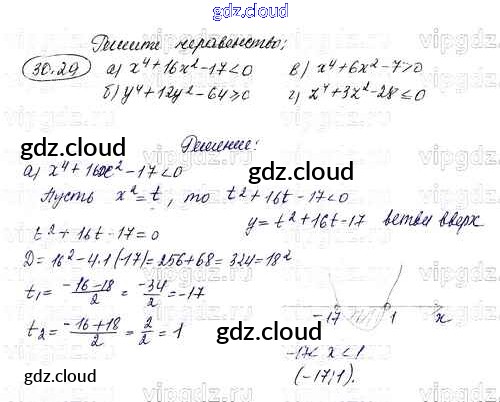 gdz.cloud
Решите неравенство:
30.29 а) x⁴+16x²-17<0 в) x⁴+6x²-7>0
б) y⁴+12y²-64≥0 г) z⁴+3z²-28≤0
gdz.cloud
Решение:
а) x⁴+16x²-17<0
gdz.cloud
gdz.cloud
Пусть x²=t, то t²+16t-17<0
y=t²+16t-17 ветви вверх
t²+16t-17=0
D=16²-4·1·(-17)=256+68=324=18²
gdz.cloud
t₁= -16-18/2 = -34/2 = -17
t₂= -16+18/2 = 2/2 = 1
-17 1 x
gdz.cloud
-17<x<1
(-17;1).
gdz.cloud
gdz.cloud